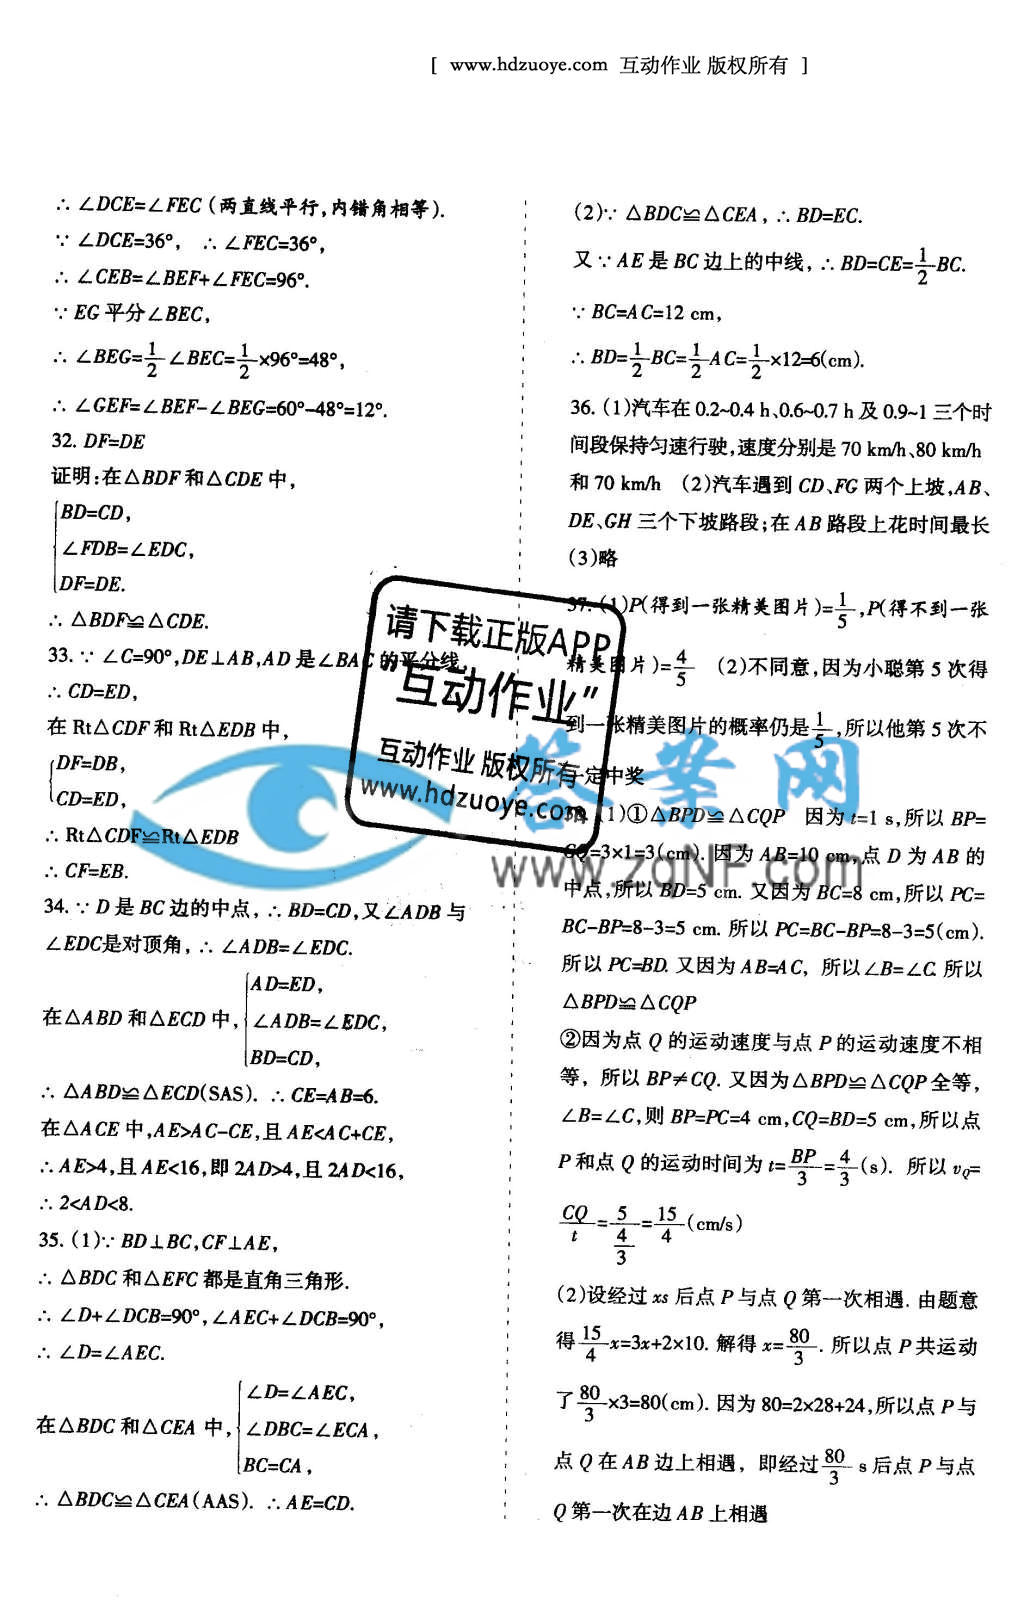 [ www.hdzuoye.com 互动作业 版权所有 ]
∴ ∠DCE=∠FEC (两直线平行,内错角相等).
∵ ∠DCE=36°, ∴ ∠FEC=36°,
∴ ∠CEB=∠BEF+∠FEC=96°.
∵ EG 平分∠BEC,
∴ ∠BEG=1/2∠BEC=1/2×96°=48°,
∴ ∠GEF=∠BEF-∠BEG=60°-48°=12°.
32. DF=DE
证明:在△BDF和△CDE中,
BD=CD,
∠FDB=∠EDC,
DF=DE.
∴ △BDF≌△CDE.
33. ∵ ∠C=90°,DE⊥AB,AD是∠BAC的平分线,
∴ CD=ED,
在 Rt△CDF 和 Rt△EDB 中,
DF=DB,
CD=ED,
∴ Rt△CDF≌Rt△EDB
∴ CF=EB.
34. ∵ D 是 BC 边的中点, ∴ BD=CD,又∠ADB 与
∠EDC是对顶角, ∴ ∠ADB=∠EDC.
AD=ED,
在△ABD 和△ECD 中, ∠ADB=∠EDC,
BD=CD,
∴ △ABD≌△ECD(SAS). ∴ CE=AB=6.
在△ACE 中,AE>AC-CE,且 AE<AC+CE,
∴ AE>4,且 AE<16,即 2AD>4,且 2AD<16,
∴ 2<AD<8.
35. (1)∵ BD⊥BC,CF⊥AE,
∴ △BDC 和△EFC 都是直角三角形.
∴ ∠D+∠DCB=90°,∠AEC+∠DCB=90°,
∴ ∠D=∠AEC.
∠D=∠AEC,
在△BDC 和△CEA 中, ∠DBC=∠ECA,
BC=CA,
∴ △BDC≌△CEA(AAS). ∴ AE=CD.
(2)∵ △BDC≌△CEA, ∴ BD=EC.
又∵ AE 是 BC 边上的中线, ∴ BD=CE=1/2BC.
∵ BC=AC=12 cm,
∴ BD=1/2BC=1/2AC=1/2×12=6(cm).
36. (1)汽车在 0.2~0.4 h、0.6~0.7 h 及 0.9~1 三个时
间段保持匀速行驶,速度分别是 70 km/h、80 km/h
和 70 km/h (2)汽车遇到 CD、FG 两个上坡,AB、
DE、GH 三个下坡路段;在 AB 路段上花时间最长
(3)略
37. (1)P(得到一张精美图片)=1/5,P(得不到一张
精美图片)=4/5 (2)不同意,因为小聪第 5 次得
到一张精美图片的概率仍是1/5,所以他第 5 次不
一定中奖
38. (1)①△BPD≌△CQP 因为 t=1 s,所以 BP=
CQ=3×1=3(cm). 因为 AB=10 cm,点 D 为 AB 的
中点,所以 BD=5 cm. 又因为 BC=8 cm,所以 PC=
BC-BP=8-3=5 cm. 所以 PC=BC-BP=8-3=5(cm).
所以 PC=BD. 又因为 AB=AC, 所以∠B=∠C. 所以
△BPD≌△CQP
②因为点 Q 的运动速度与点 P 的运动速度不相
等, 所以 BP≠CQ. 又因为△BPD≌△CQP 全等,
∠B=∠C,则 BP=PC=4 cm,CQ=BD=5 cm,所以点
P 和点 Q 的运动时间为 t=BP/3=4/3(s). 所以 vQ=
CQ/t=5/(4/3)=15/4(cm/s)
(2)设经过 xs 后点 P 与点 Q 第一次相遇. 由题意
得15/4x=3x+2×10. 解得 x=80/3. 所以点 P 共运动
了80/3×3=80(cm). 因为 80=2×28+24,所以点 P 与
点 Q 在 AB 边上相遇, 即经过80/3 s 后点 P 与点
Q 第一次在边 AB 上相遇
请下载正版APP
"互动作业"
互动作业 版权所有
www.hdzuoye.com
答案网
www.zqNF.com